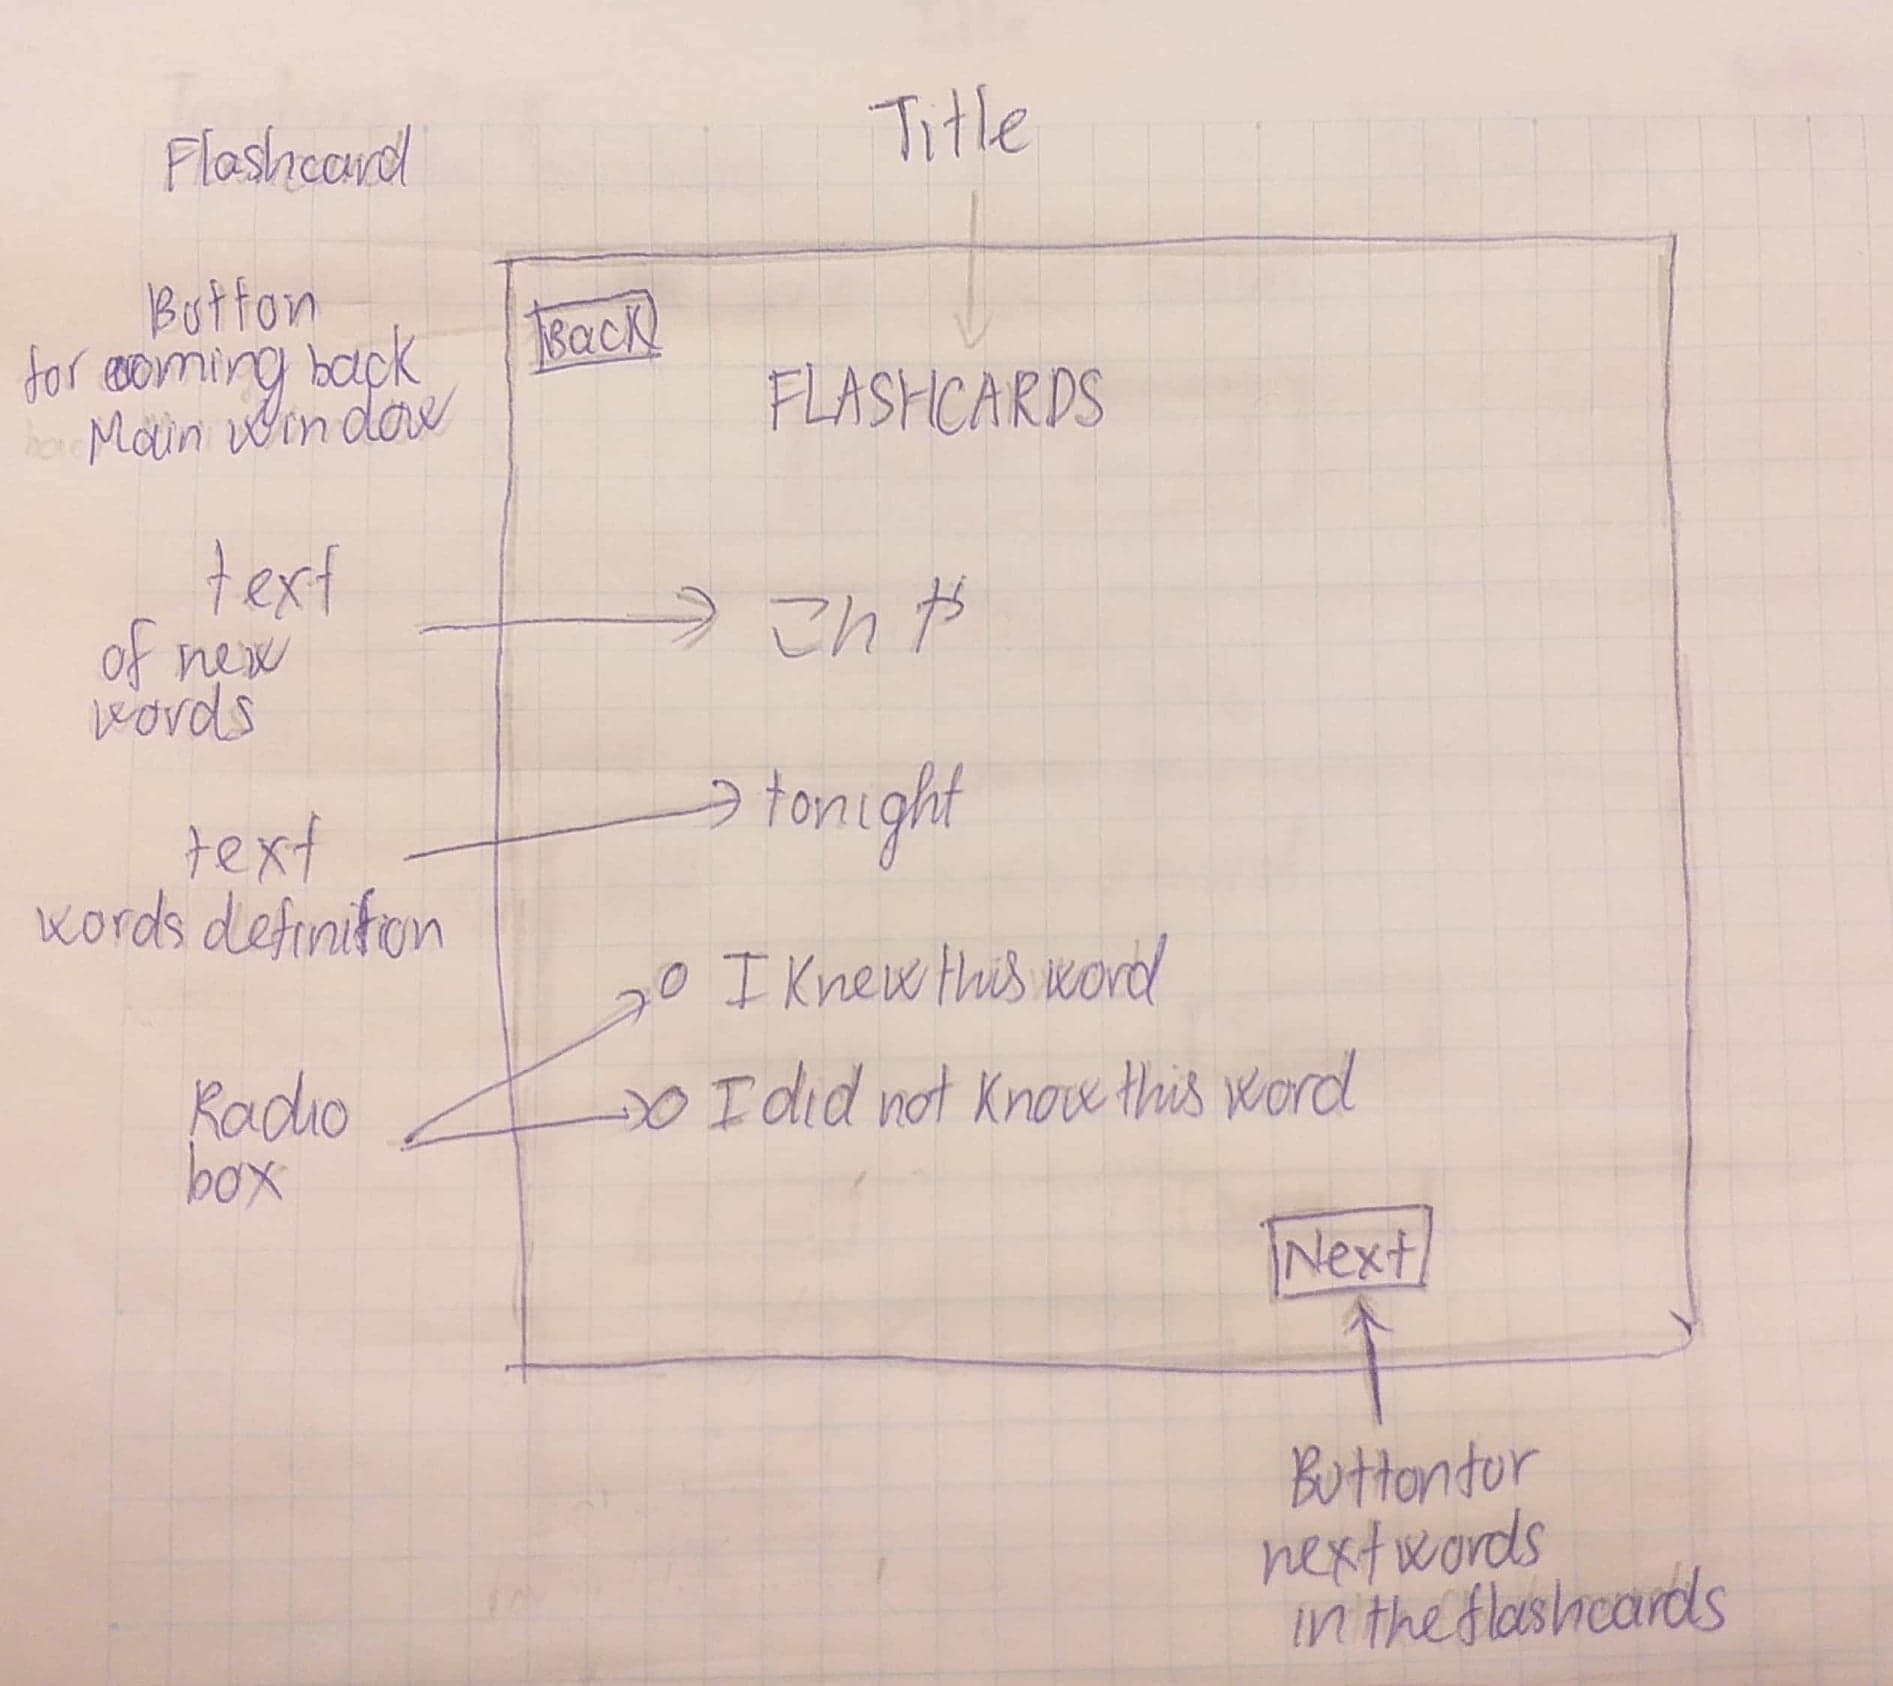 Title
Flashcard
Button
for coming back
Main window
Back
FLASHCARDS
text
of new
words
こんや
tonight
text
words definition
I knew this word
Radio
box
I did not know this word
Next
Button for
next words
in the flashcards